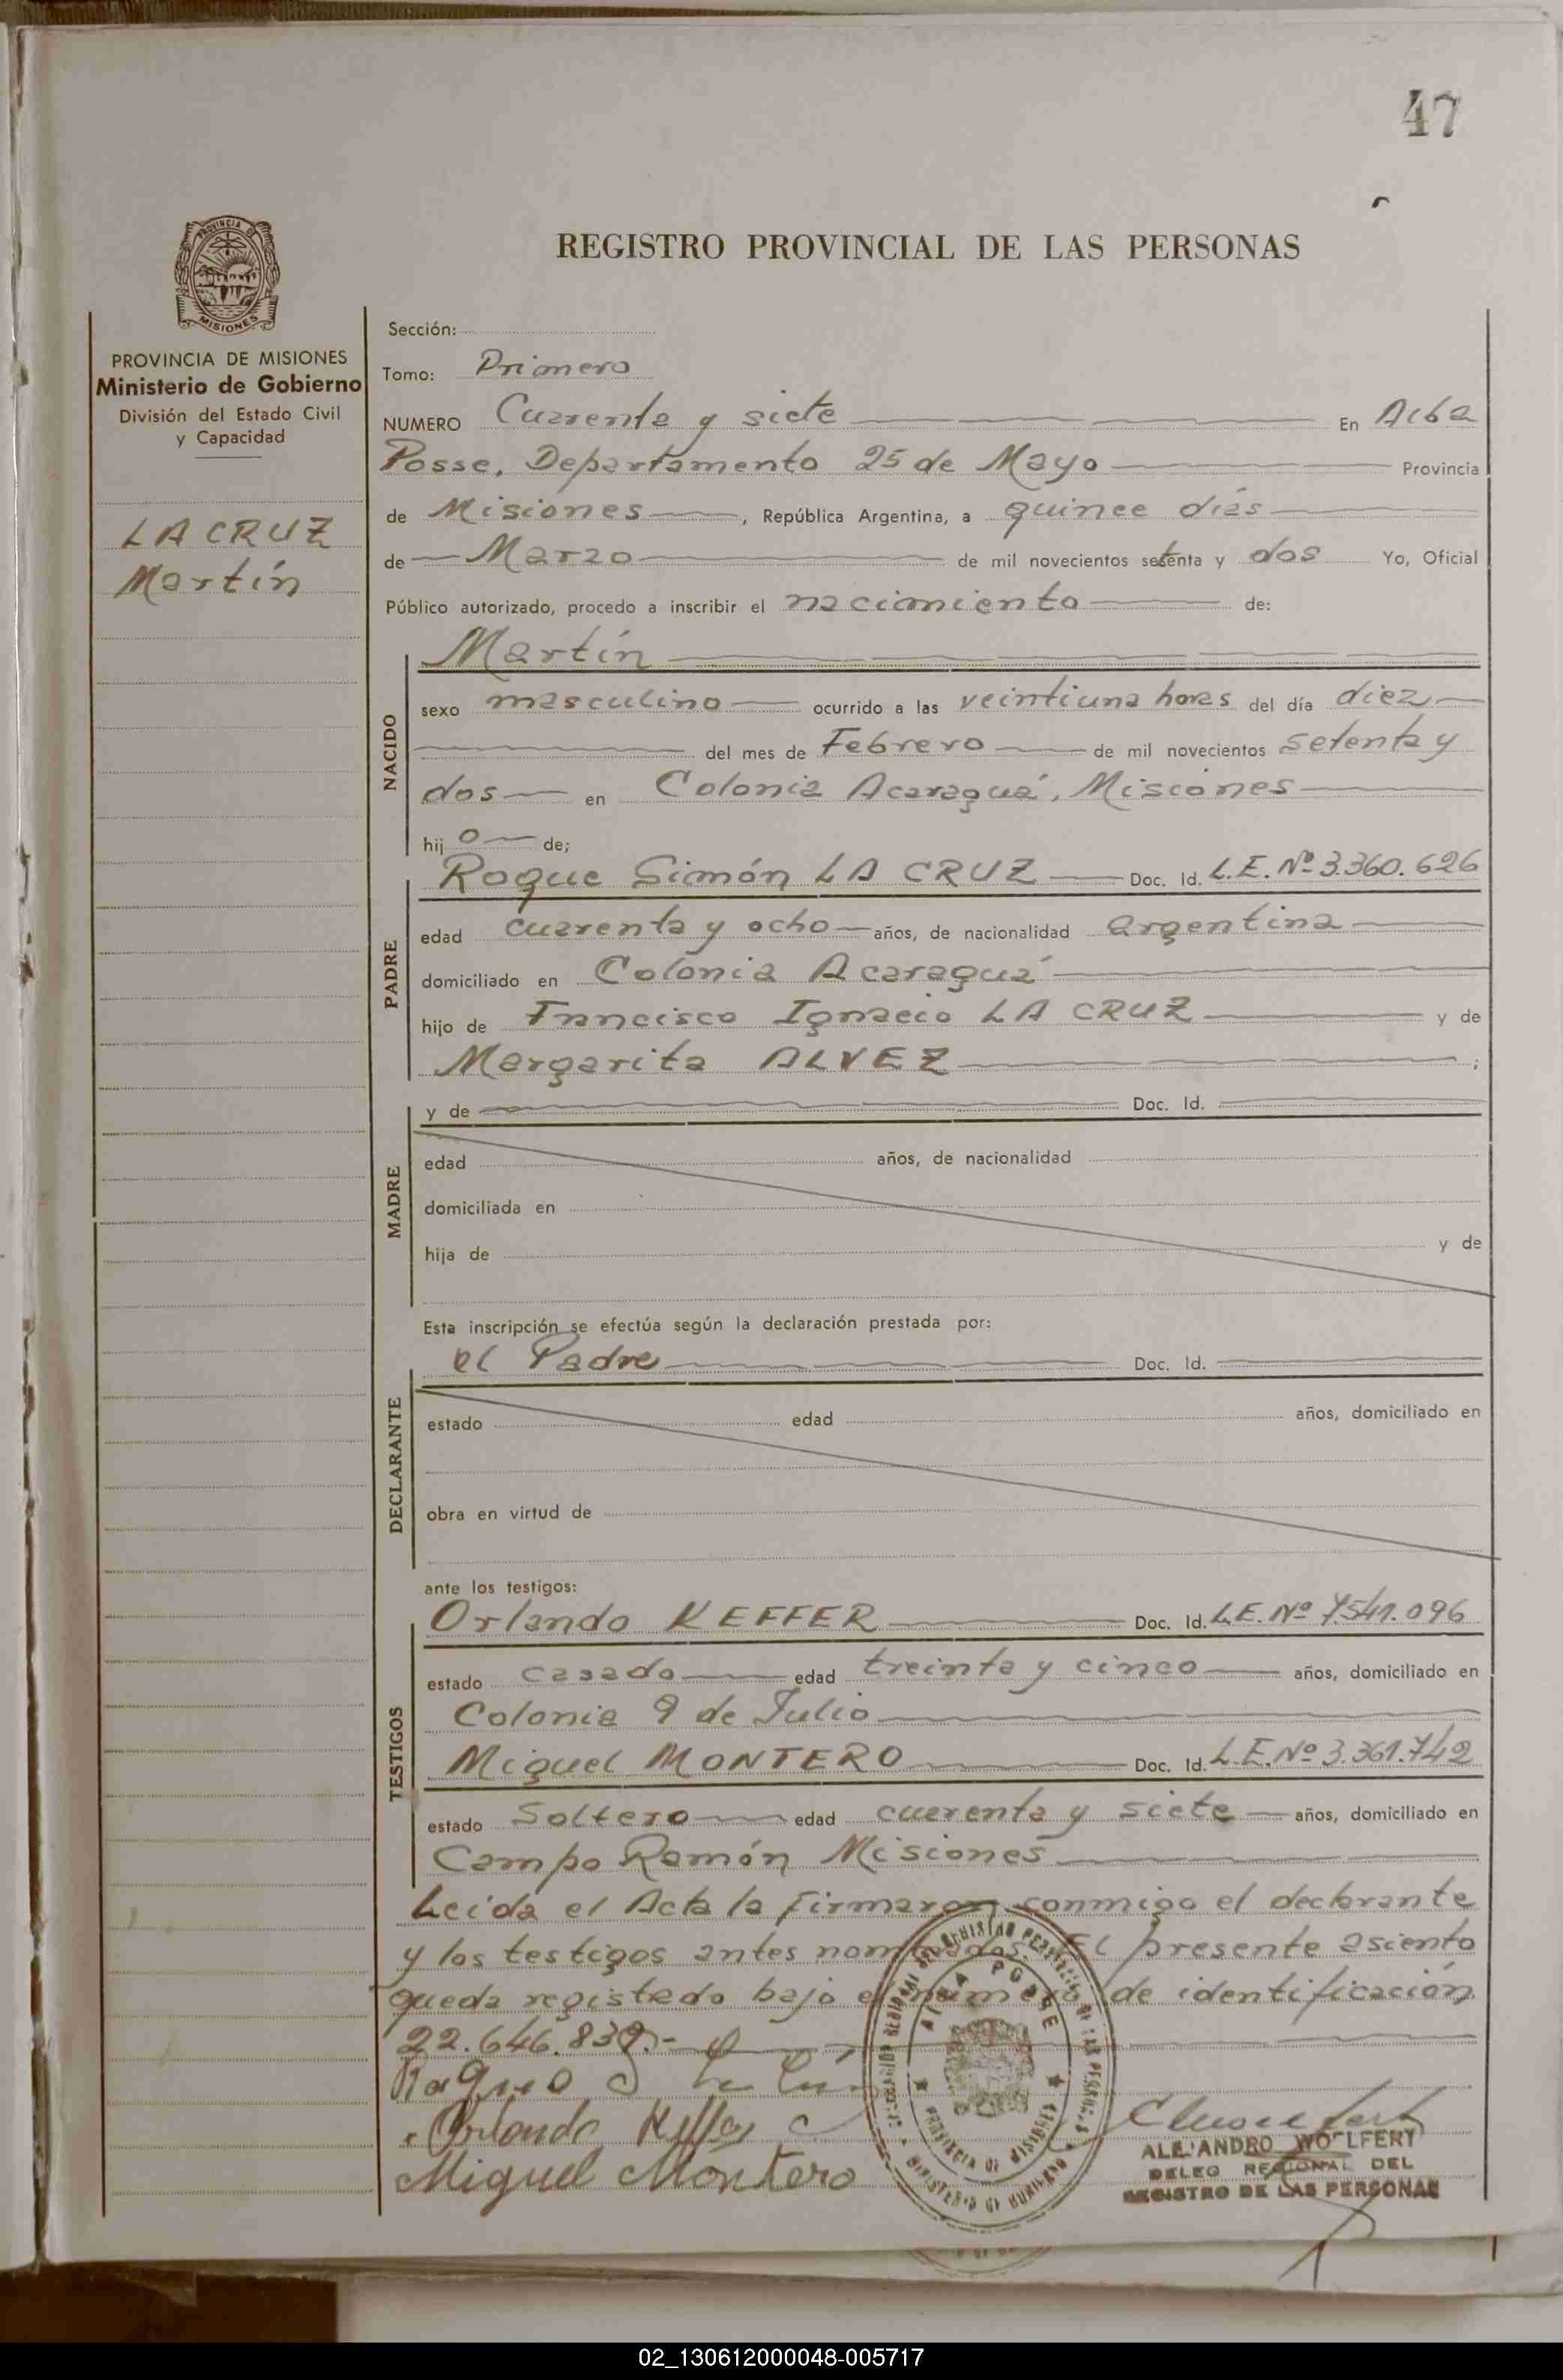 47
REGISTRO PROVINCIAL DE LAS PERSONAS
PROVINCIA DE
MISIONES
PROVINCIA DE MISIONES
Ministerio de Gobierno
División del Estado Civil
y Capacidad
LA CRUZ
Martín
Sección:
Tomo: Primero
NUMERO Cuarenta y siete En Alba
Posse, Departamento 25 de Mayo Provincia
de Misiones, República Argentina, a quince días
de Marzo de mil novecientos setenta y dos Yo, Oficial
Público autorizado, procedo a inscribir el nacimiento de:
Martín
NACIDO
sexo masculino ocurrido a las veintiuna horas del día diez
del mes de Febrero de mil novecientos setenta y
dos en Colonia Acaraguá, Misiones
hij o de;
Roque Simón LA CRUZ Doc. Id. L.E. Nº 3.360.626
PADRE
edad cuarenta y ocho años, de nacionalidad argentina
domiciliado en Colonia Acaraguá
hijo de Francisco Ignacio LA CRUZ y de
Margarita ALVEZ ;
MADRE
y de Doc. Id.
edad años, de nacionalidad
domiciliada en
hija de y de
Esta inscripción se efectúa según la declaración prestada por:
el Padre Doc. Id.
DECLARANTE
estado edad años, domiciliado en
obra en virtud de
ante los testigos:
TESTIGOS
Orlando KEFFER Doc. Id. L.E. Nº 7.541.096
estado casado edad treinta y cinco años, domiciliado en
Colonia 9 de Julio
Miguel MONTERO Doc. Id. L.E. Nº 3.361.742
estado Soltero edad cuarenta y siete años, domiciliado en
Campo Ramón Misiones
Leida el Acta la firmaron conmigo el declarante
y los testigos antes nombrados. El presente asiento
queda registrado bajo el número de identificación
22.646.839.-
Orlando Keffer
Miguel Montero
ALBA POSSE
PROVINCIA DE MISIONES
ALEJANDRO WOLFERT
DELEG REGIONAL DEL
REGISTRO DE LAS PERSONAS
02_130612000048-005717